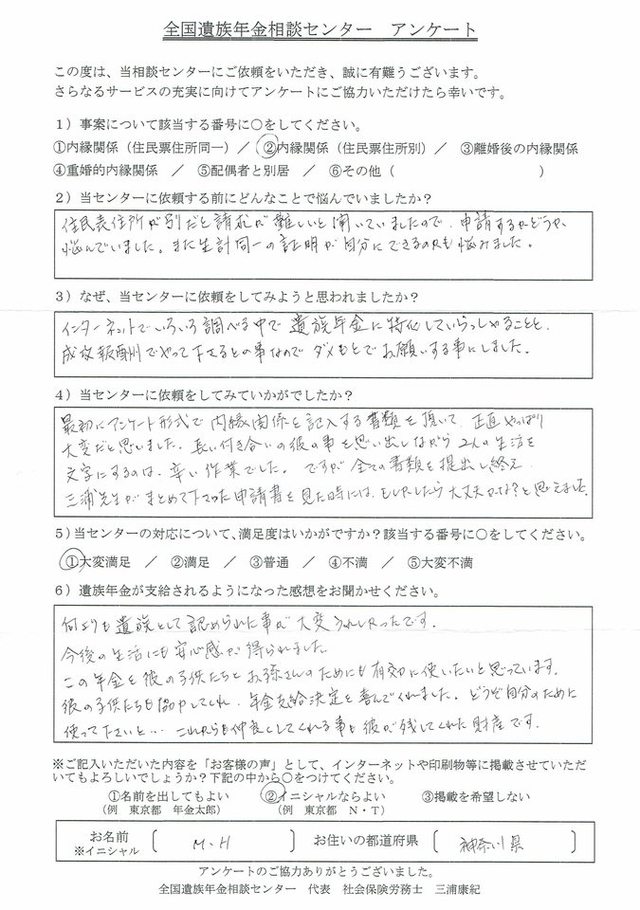 全国遺族年金相談センター　アンケート
この度は、当相談センターにご依頼をいただき、誠に有難うございます。
さらなるサービスの充実に向けてアンケートにご協力いただけたら幸いです。
1）事案について該当する番号に○をしてください。
①内縁関係（住民票住所同一）／　②内縁関係（住民票住所別）／　③離婚後の内縁関係
④重婚的内縁関係　／　⑤配偶者と別居　／　⑥その他（　　　　　　　　　　）
2）当センターに依頼する前にどんなことで悩んでいましたか？
住民表住所が別だと請求が難しいと聞いていましたので、申請するかどうか
悩んでいました。また生計同一の証明が自分にできるのかも悩みました。
3）なぜ、当センターに依頼をしてみようと思われましたか？
インターネットでいろいろ調べる中で遺族年金に特化していらっしゃることと、
成功報酬でやって下さるとの事なので ダメもとでお願いする事にしました。
4）当センターに依頼をしてみていかがでしたか？
最初にアンケート形式で内縁関係を記入する書類を頂いて、正直やっぱり
大変だと思いました。長い付き合いの彼の事を思い出しながら 2人の生活を
文字にするのは、辛い作業でした。ですが全ての書類を提出し終え
三浦先生がまとめて下さった申請書を見た時には、もしかしたら大丈夫かな？と思えました
5）当センターの対応について、満足度はいかがですか？該当する番号に○をしてください。
①大変満足　／　②満足　／　③普通　／　④不満　／　⑤大変不満
6）遺族年金が支給されるようになった感想をお聞かせください。
何よりも遺族として認められた事が大変うれしかったです。
今後の生活にも安心感が得られました
この年金を彼の子供たちとお孫さんのためにも有効に使いたいと思っています。
彼の子供たちも協力してくれ、年金支給決定を喜んでくれました。どうぞ自分のために
使って下さいと… これからも仲良くしてくれる事も彼が残してくれた財産です。
※ご記入いただいた内容を「お客様の声」として、インターネットや印刷物等に掲載させていただ
いてもよろしいでしょうか？下記の中から○をつけてください。
①名前を出してもよい　②イニシャルならよい　③掲載を希望しない
（例　東京都　年金太郎）　（例　東京都　N・T）
お名前　M・H　お住いの都道府県　神奈川県
※イニシャル
アンケートのご協力ありがとうございました。
全国遺族年金相談センター　代表　社会保険労務士　三浦康紀